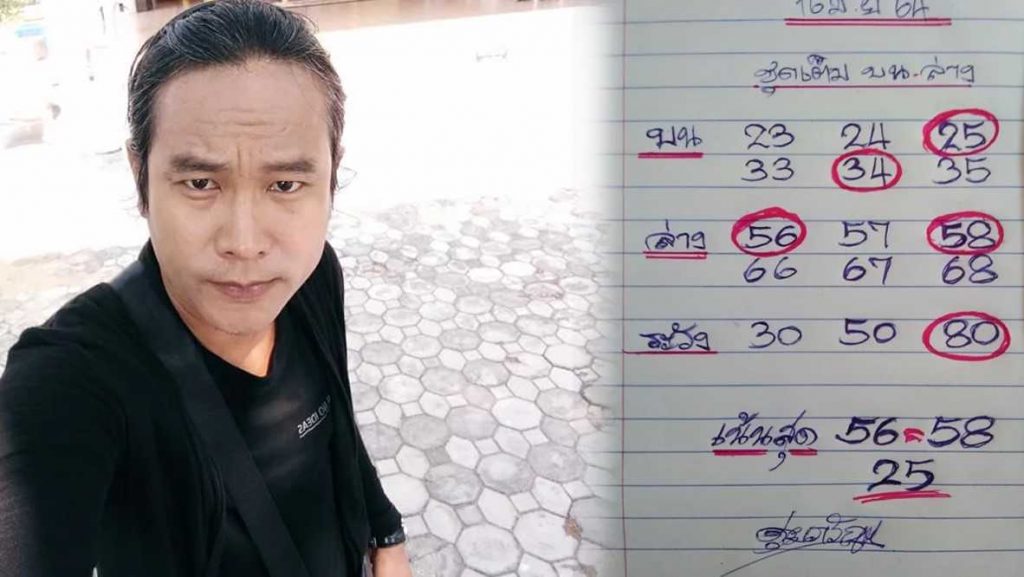 16 มิ.ย 64
ชุดเต็ม บน-ล่าง
บน 23 24 25
33 34 35
ล่าง 56 57 58
66 67 68
ระวัง 30 50 80
เน้นสุด 56=58
25
IDEAS